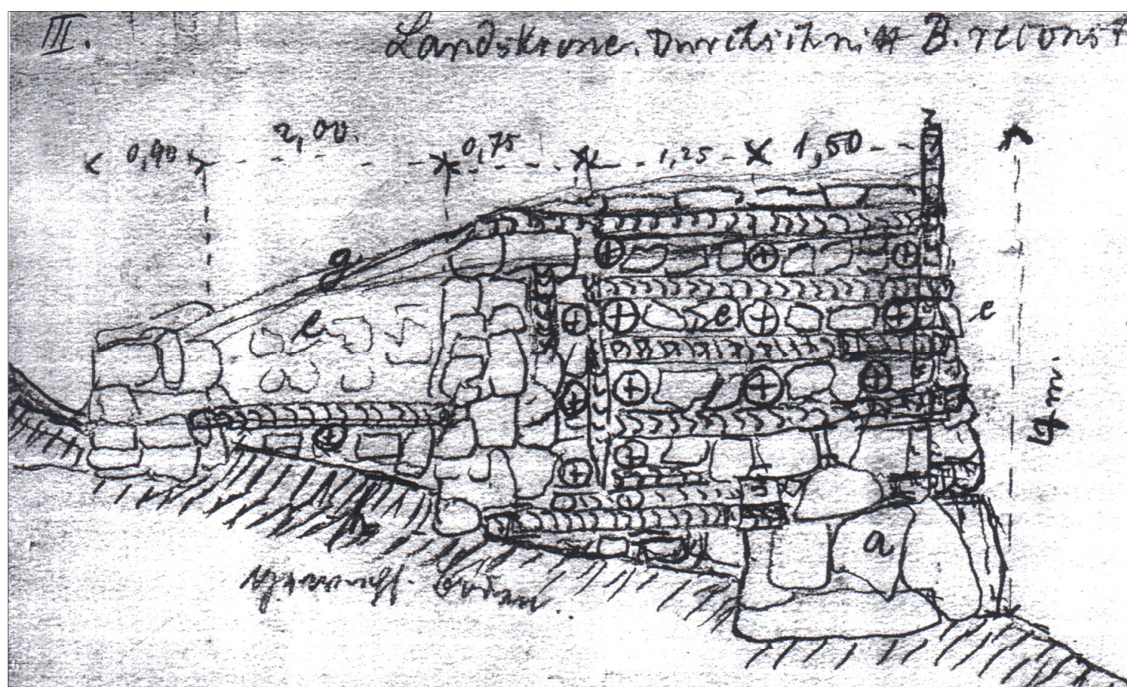 III. Landskrone. Durchschnitt B. reconst
0,90 2,00. 0,75 1,25 1,50
g
e
e
e
4 m.
a
Boden.